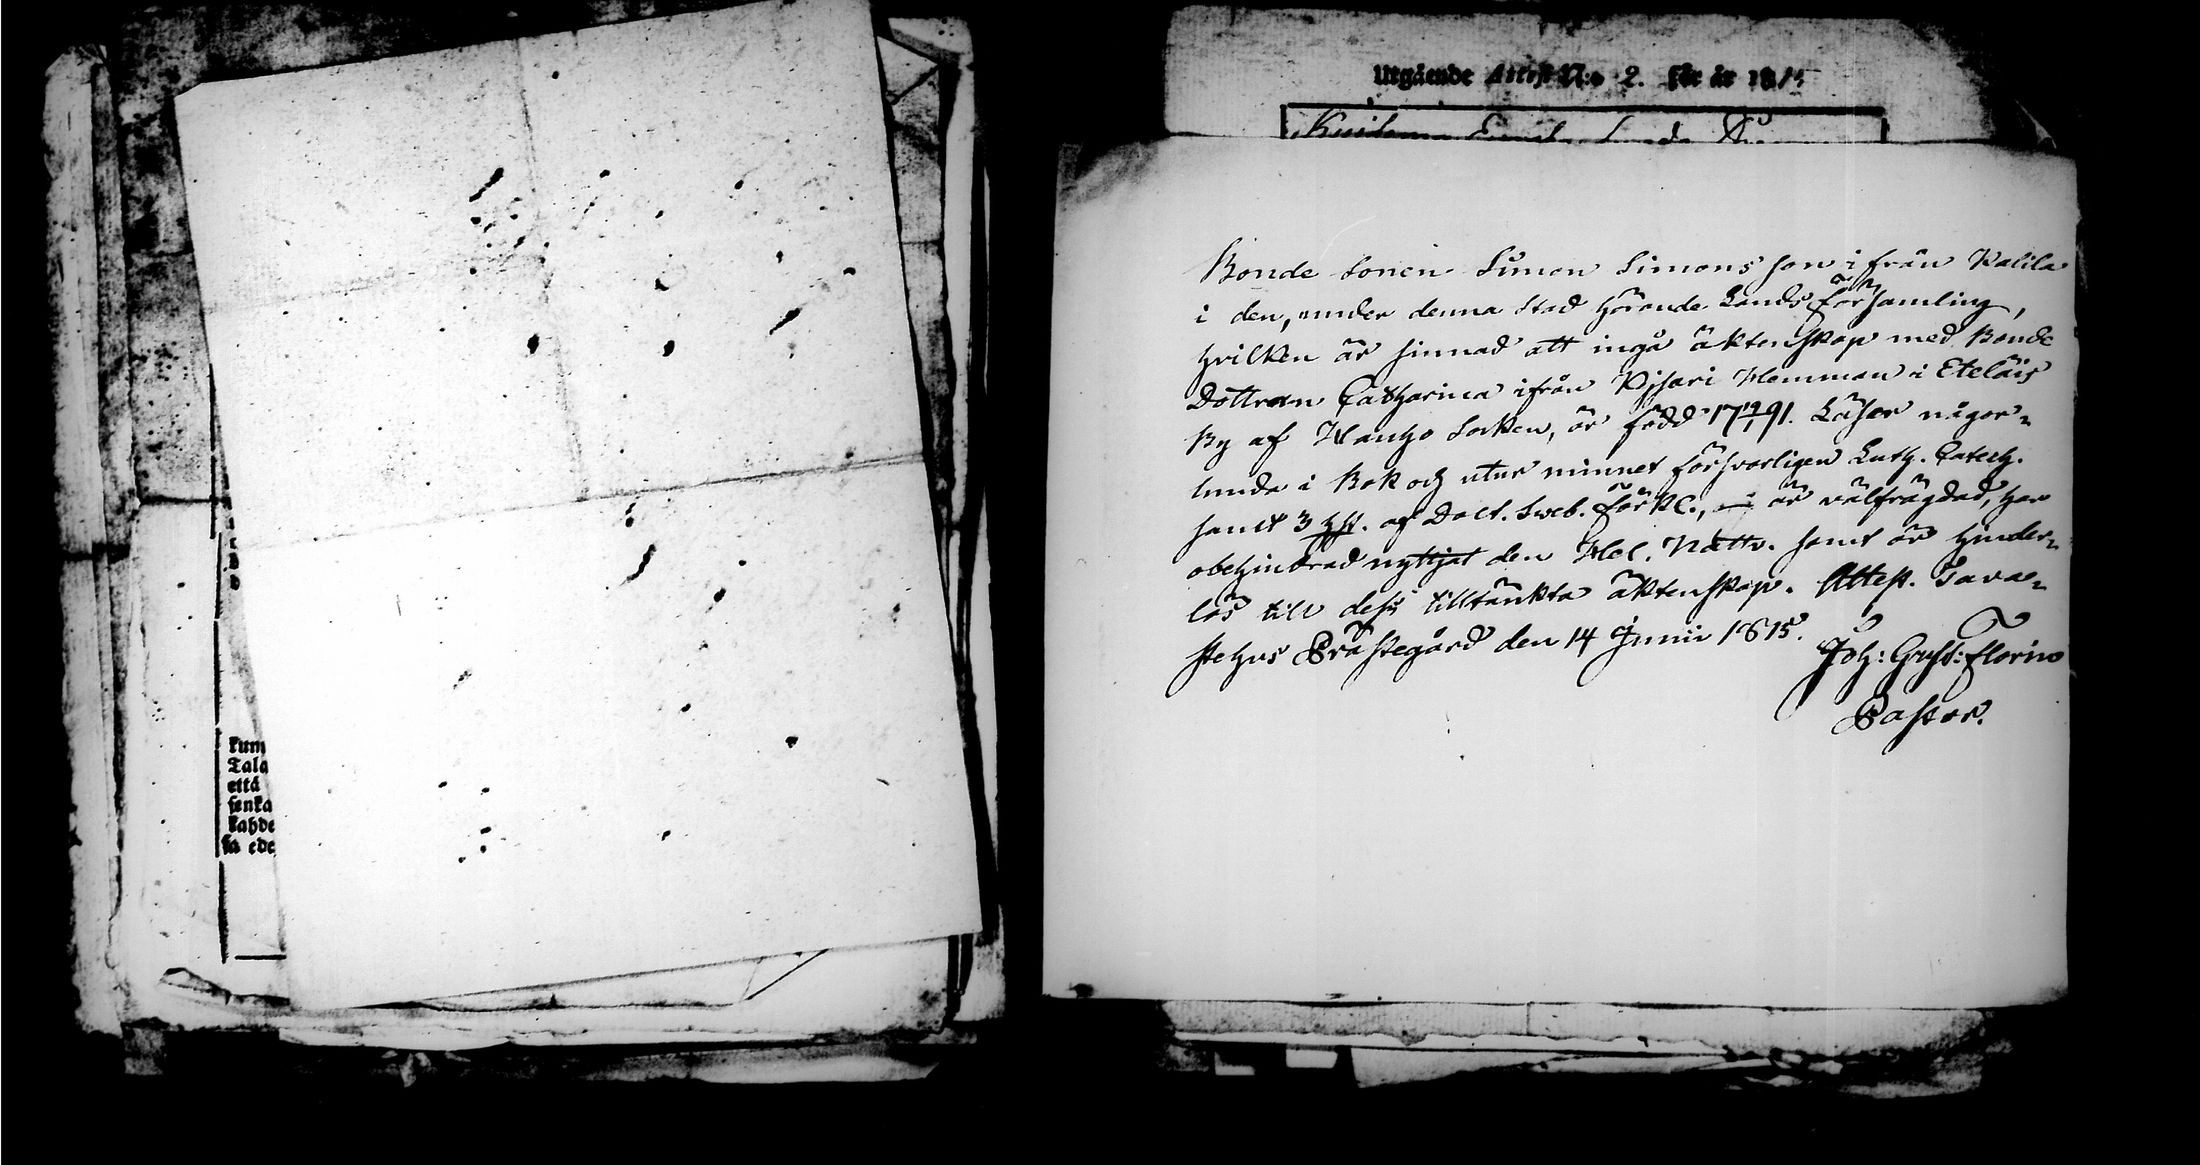 kum
Tala
että
senka
kahde
sa ede
Utgående Attest N:o 2. för år 1815
Bonde Sonen Simon Simons son ifrån Kalila
i den, under denna Stad hörande Landsförsamling,
hvilken är sinnad att ingå äktenskap med Bonde
Dottren Catharina ifrån Pjsari Hemman i Eteläis
By af Hauho Socken, är född 17 19/1 91. Läser någor-
lunda i Bok och utur minnet försvarligen Luth. Catech.
samt 3 hst. af Doct. Sweb. förkl., är välfrägdad, har
obehindrad nyttjat den Hel. Nattv. samt är hinder-
lös till dess tilltänkta äktenskap. Attest. Tava-
stehus Prästegård den 14 Junii 1815.
Joh: Gust: Florin
Pastor.